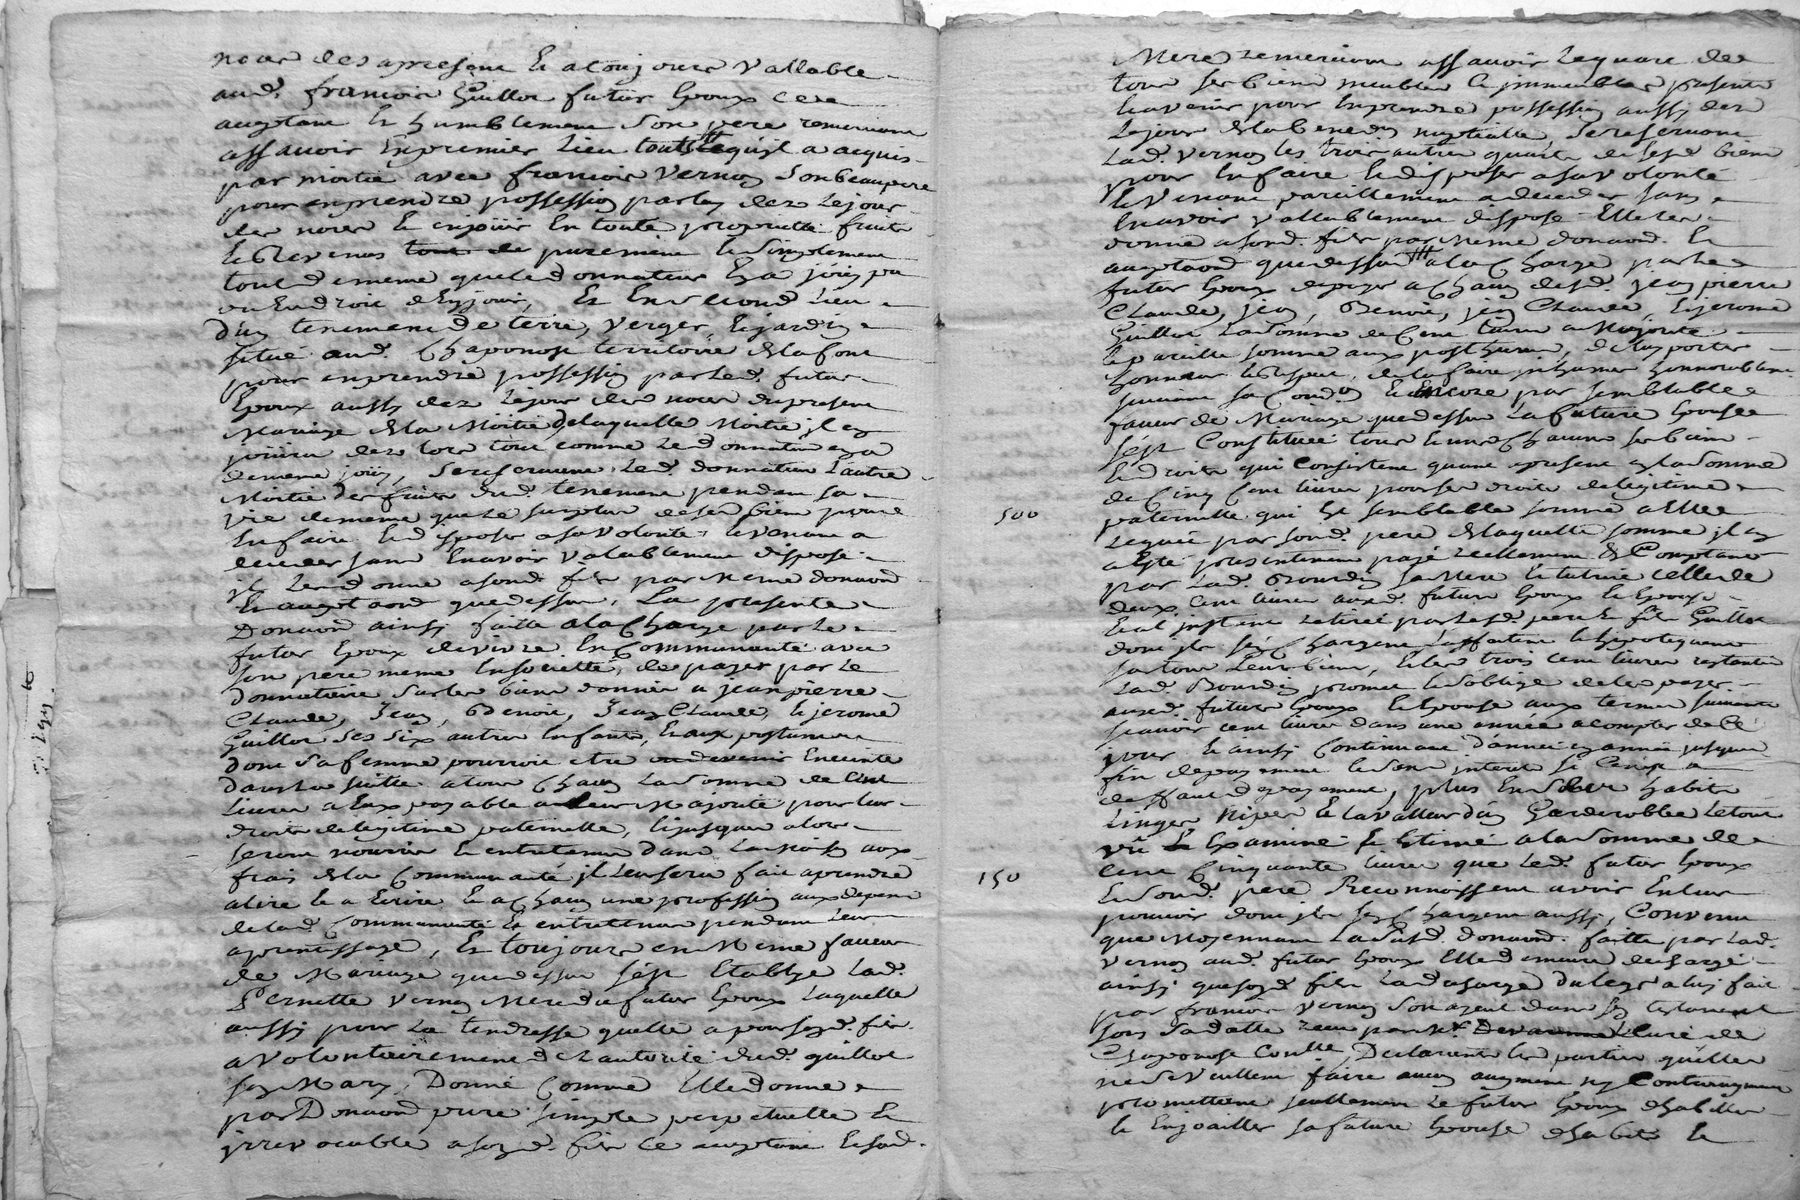 noces des apresent Et atoujours Vallable
aud. francois Guillot futur Epoux ce
acceptant Et humblement son pere remerciant
assavoir Enpremier Lieu tout ce quyl a acquis
par moitié avec francois Vernay Sonbeaupere
pour enprendre possession parluy dez Lejour
des noces Et enjouir En toute proprietté fruits
Et Revenus purement Et Simplement
tout demême queledonnateur En a jouy pu
ou Endroit d'Enjouir, Et En second Lieu
d'un tenement de terre, Verger, Et jardin
situé aud. Chaponost territoire delafont
pour enprendre possession parled. futur
Epoux aussy dez Lejour des noces dupresent
Mariage dela Moitié delaquelle Moitié jl en
jouira dez lors tout comme Ledonnateur en a
demême jouy, sereservant Led. donnateur L'autre
Moitié des fruits dud. tenement pendant sa
vie demême que Le surplus deses biens pour
Enfaire Et disposer asavolonté Et venant a
deceder sans Enavoir valablement disposé
jl Les donne asond. fils par même donaon
Et acceptaon quedessus, La presente
Donaon ainsy faitte alaCharge par Le
futur Epoux devivre En Communauté avec
son pere meme Ensocietté, de payer par Le
donnataire Surles biens donnés a jeanpierre
Claude, Jean, Benoit, Jean Claude, Et jerome
Guillot ses six autres Enfants, Et aux postumes
dont safemme pourroit etre Enceinte
danslasuitte atous Chacun La somme de Cent
Livres a Eux payable a Leur Majorité pour leur
droits delegitime paternelle, Et jusques alors
seront nourris Et entretenus dans Lamaison aux
frais dela Communauté jl Leursera fait aprendre
alire Et a Ecrire Et a Chacun une profession aux depens
delad. Communauté Et entretenus pendant Leur
aprentissage, Et toujours en Meme faveur
de Mariage que dessus s'est Etablye Lad.
Pernette Vernay Mere dufutur Epoux Laquelle
aussy pour La tendresse quelle a poursond. fils
a Volontairement de L'autorité dud. guillot
son Mary, Donné Comme Elle donne
par Donaon pure simple perpetuelle Et
jrrevocable a sond. fils ce acceptant Et sad.
Mere remerciant assavoir Lequart de
tous ses biens meubles Et jmmeubles presents
Et avenir pour Enprendre possession aussy dez
Lejour delabenedon nuptialle, Sereservant
Lad. Vernay les trois autres quarts de sesd. biens
pour Enfaire Et disposer a savolonté
Et Venant pareillement adeceder sans
Enavoir Vallablement disposé Elle les
donne asond. fils par meme donaon. Et
acceptaon quedessus alaCharge par le
futur Epoux depayer aChacun desd. jean pierre
Claude, jean, Benoit, jean Claude, Et jerome
Guillot La somme deCent Livres a Majorité
Et pareille somme aux posthumes, de luy porter
honneur Et respect, delafaire jnhumer honnorablement
suivant sa condon. Et Encore par semblable
faveur de Mariage quedessus La future Epouse
s'est Constituée tous Et uns Chacuns ses biens
Et droits qui Consistent quant apresent en La somme
de Cinq Cent livres pour ses droits delegitime
500
paternelle qui Est semblable somme a Elle
Leguée par sond. pere delaquelle somme jl en
a Esté presentement payé reellement & Comptant
par Lad. Bourdin sa Mere Et tutrice celle de
deux Cent livres auxd. futurs Epoux Et Epouse
Et al jnstant retirée par lesd. pere Et fils Guillot
dont jls sesChargent Et assettent Et hypotequent
surtous Leurs biens, Et les trois cent livres restantes
Lad. Bourdin promet Et s'oblige deles payer
auxd. futurs Epoux Et Epouse aux termes suivants
scavoir cent livres dans une année acompter de Ce
jour Et ainsy Continuant d'année enannée jusques
fin depayement Et sans jnterets si Cen'est a
deffaut de payement, plus En Ses habits
Linges Nipes Et La valleur d'un Garderobbe Le tout
vû Et Examiné Et Estimé a la somme de
Cent Cinquante livres que Led. futur Epoux
150
Et sond. pere Reconnoissent avoir En leur
pouvoir dont jls se Chargent aussy, Convenu
que Moyennant La susd. donaon. faitte par Lad.
Vernay aud. futur Epoux Elle demeure dechargé
ainsy que sond. fils Lad. du Legs a luy fait
par francois Vernay Son ayeul dans son testament
sous Sadatte receu par Me. Curé de
Chaponost Coulle, Declarants les parties qu'elles
ne Se Veullent faire aucun augment ny Contraugment
promettant seullement Le futur Epoux d'habiller
Et Enjoailler sa future Epouse d'habits Et